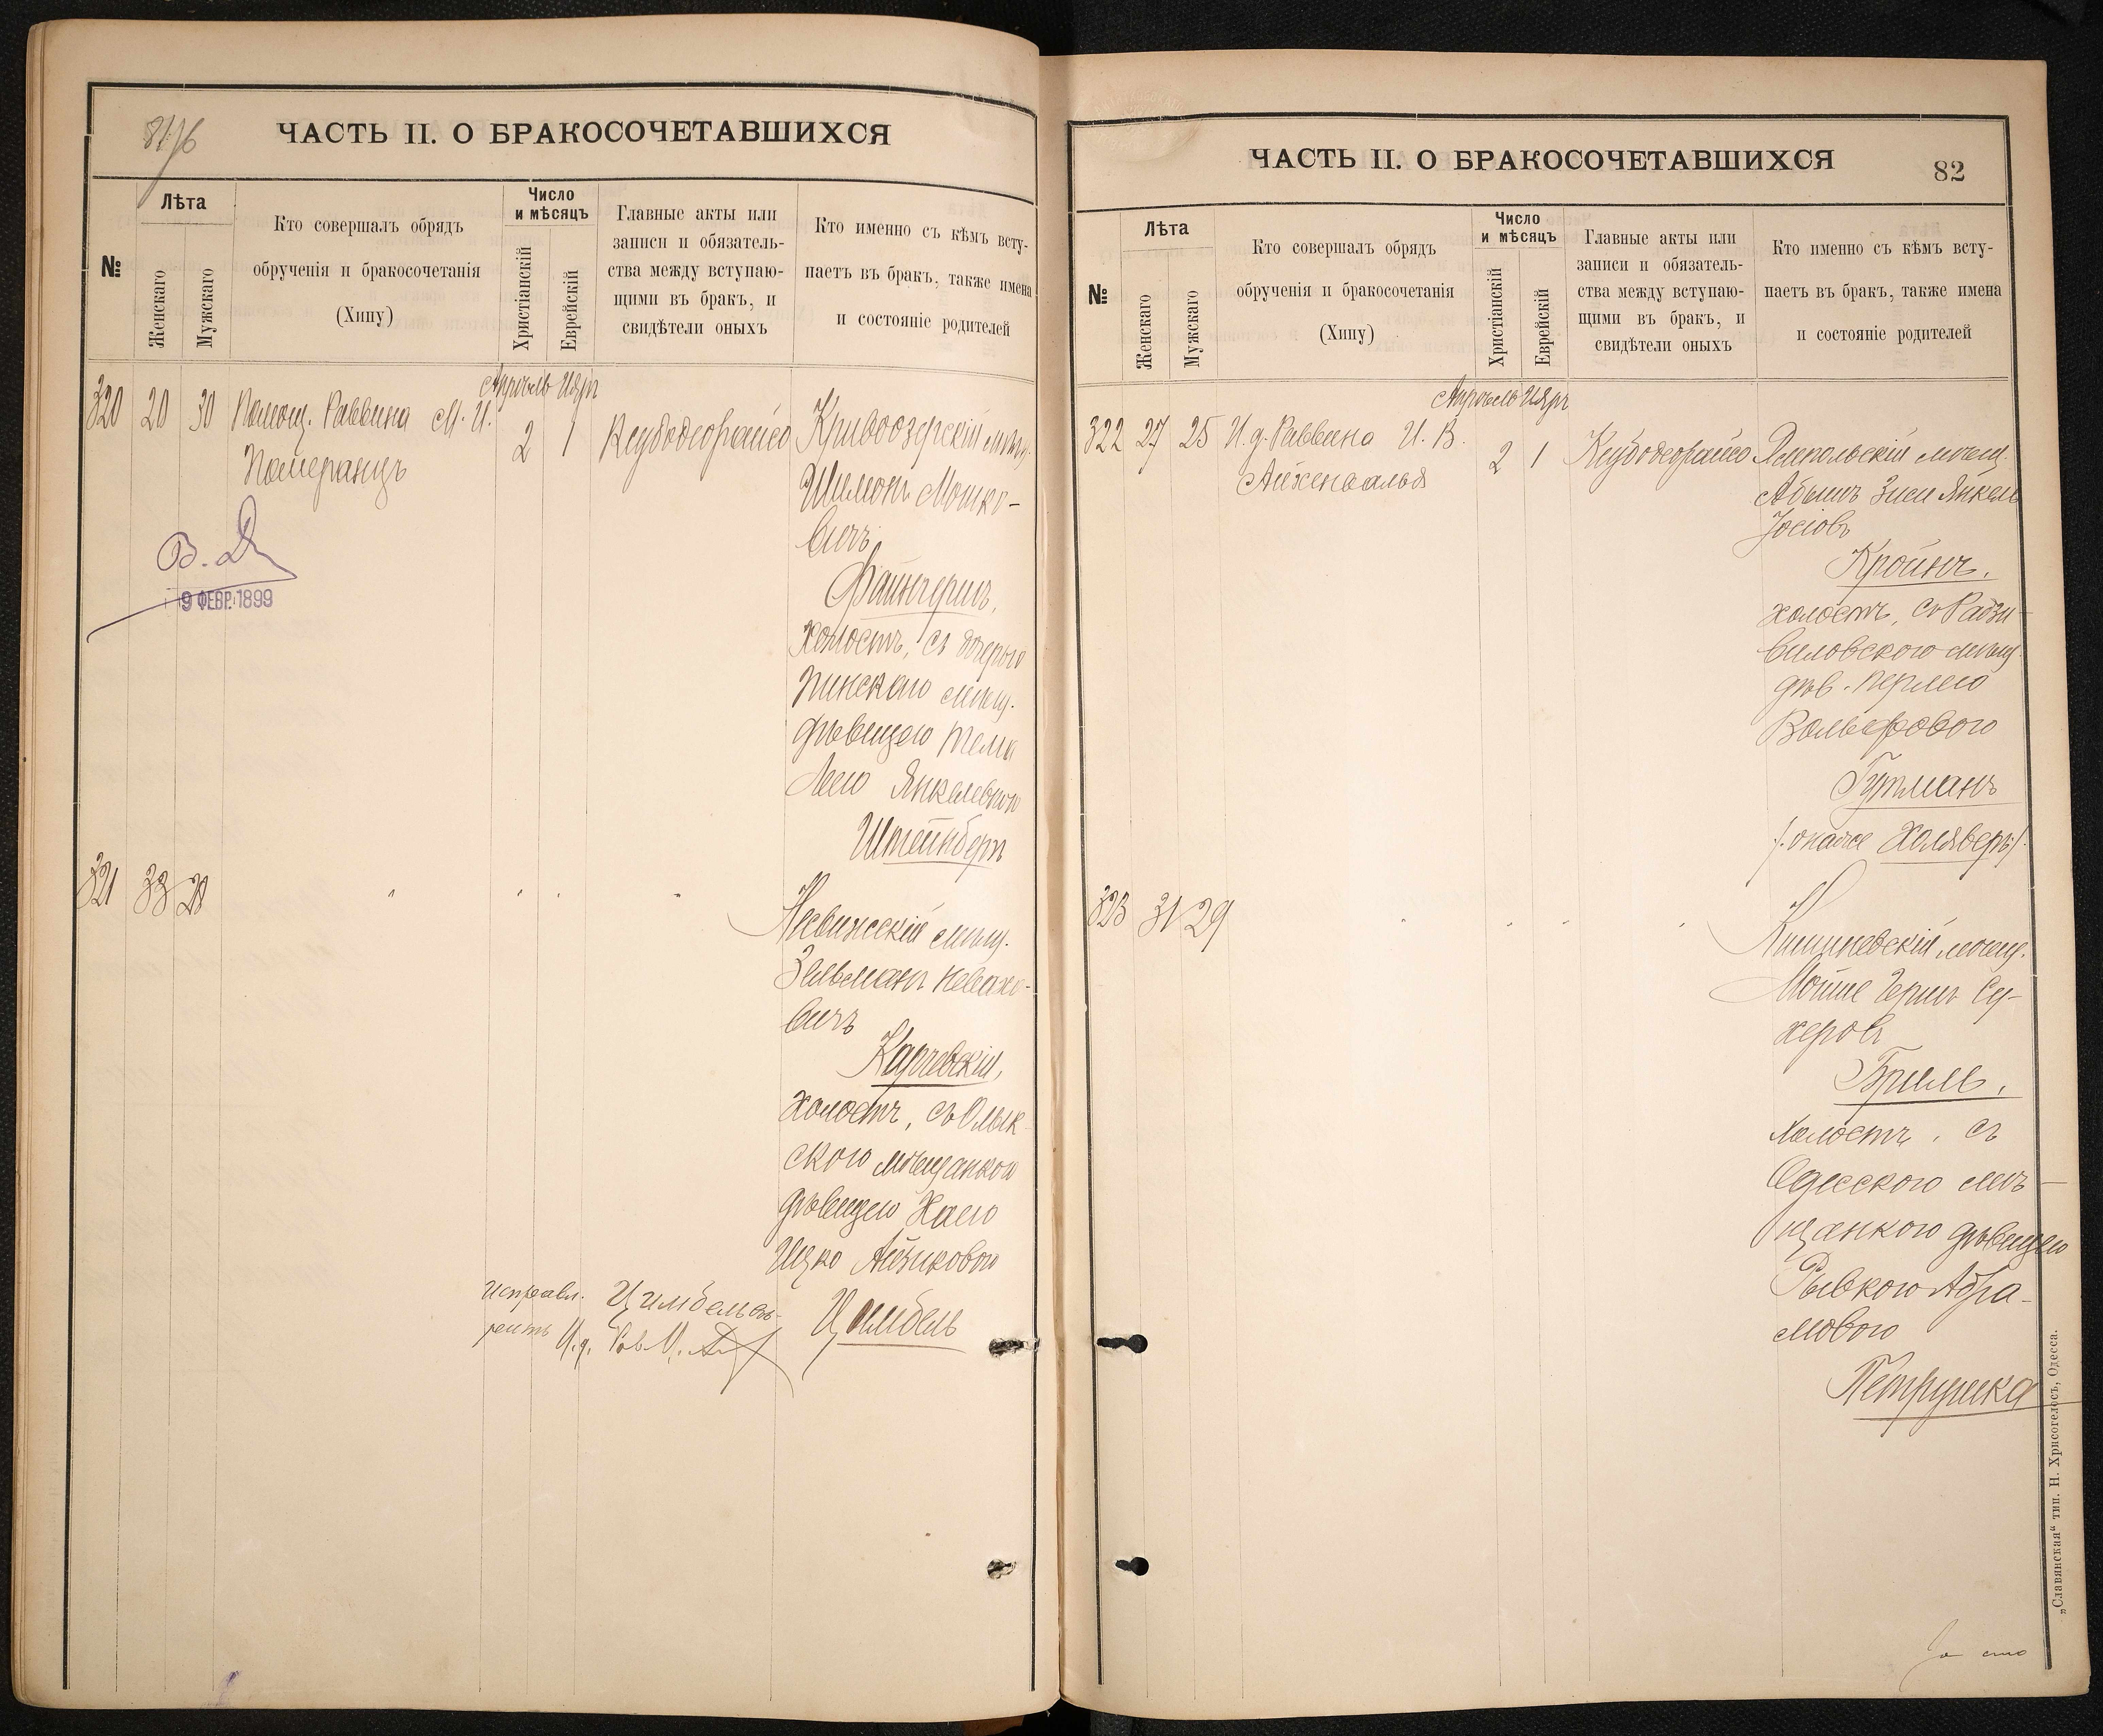 81/76
ЧАСТЬ II. О БРАКОСОЧЕТАВШИХСЯ
№
Лѣта
Женскаго
Мужскаго
Кто совершалъ обрядъ
обрученія и бракосочетанія
(Хипу)
Число
и мѣсяцъ
Христіанскій
Еврейскій
Главные акты или
записи и обязатель-
ства между вступаю-
щими въ бракъ, и
свидѣтели оныхъ
Кто именно съ кѣмъ всту-
паетъ въ бракъ, также имена
и состояніе родителей
Апрѣль Ияръ
320 20 30 Помощ. Раввина М. И.
Померанцъ
2 1 Ксубодеорайсо
Кривоозерскій мѣщ.
Шимонъ Мошко-
вичъ
Файнгершъ,
холостъ, съ
Пинскаго мѣщ.
дѣвицею
Лею Янкелевною
Штейнбергъ
В. Д
9 ФЕВР. 1899
321 33 28 " " " "
Несвижскій мѣщ.
Зельманъ Невахо-
вичъ
Карчевскій,
холостъ, съ Олык-
ского мѣщанкою
дѣвицею Хаею
Ицко Айзиковою
Цимбель
Исправл. Цимбель вѣ-
ренъ И. д. Рав.
ЧАСТЬ II. О БРАКОСОЧЕТАВШИХСЯ
82
№
Лѣта
Женскаго
Мужскаго
Кто совершалъ обрядъ
обрученія и бракосочетанія
(Хипу)
Число
и мѣсяцъ
Христіанскій
Еврейскій
Главные акты или
записи и обязатель-
ства между вступаю-
щими въ бракъ, и
свидѣтели оныхъ
Кто именно съ кѣмъ всту-
паетъ въ бракъ, также имена
и состояніе родителей
Апрѣль Ияръ
322 27 25 И. д. Раввина И. В.
Айхенвальд
2 1 Ксубодеорайсо
мѣщ.
Абышъ Зиси Янкель
Іосіовъ
Кройнъ,
холостъ, съ Радзи-
виловскою мѣщ.
дѣв. Перлею
Вольфовою
Гутманъ
/: онаже Холяверъ:/
323 31 29 " " " "
Кишиневскій мѣщ.
Мойше Герш Су-
херовъ
Бриль,
холостъ, съ
Одесскою мѣ-
щанкою дѣвицею
Рывкою Абра-
мовою
Петрушка
„Славянская“ тип. Н. Хрисогелосъ, Одесса.